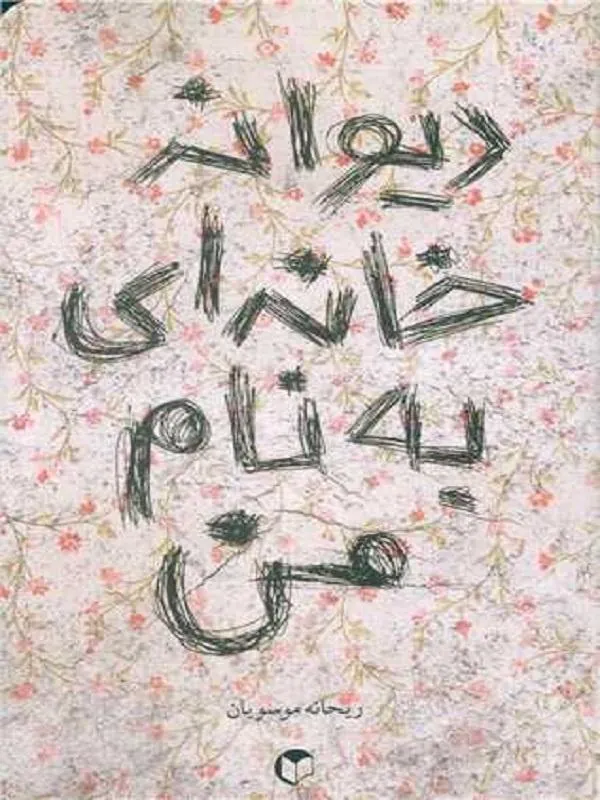 دیوانه
خانه‌ای
به نام
من
ریحانه موسویان